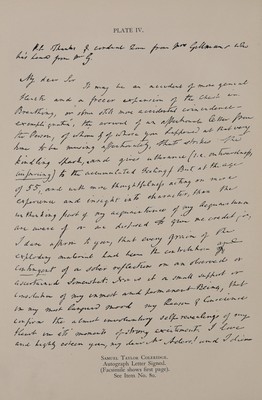 PLATE IV.
P.S. Thanks & cordial love from Mrs Gillman & also
his Love from Mr G.
My dear Sir
It may be an accident of more genial
Health and a freer expansion of the Chest in
Breathing, or some still more accidental coincidence—
exempli gratiâ, the arrival of an affectionate letter from
the Person, of whom & of whose you happened at that very
time to be musing affectionately, that strikes the
kindling Spark, and gives utterance (i.e. outerance,
) to the accumulated Feeling/ But at the age
of 55, and with more thoughtfulness acting on more
experience and insight into character, than the
unthinking part of my acquaintances of my acquaintance
are aware of or are disposed to give me credit for,
I dare affirm to you, that every grain of the
explosive material had been the
contingent of a sober reflection on an observed or
ascertained Somewhat. Nor is it a small support or
consolation of my inmost and permanent Being, that
in my most tranquil mood my Reason & Conscience
confirm the almost involuntary self-revealings of my
Heart in its moments of strong excitement. I love
and highly esteem you, my dear Mr Aders! and I
SAMUEL TAYLOR COLERIDGE.
Autograph Letter Signed.
(Facsimile shows first page).
See Item No. 80.